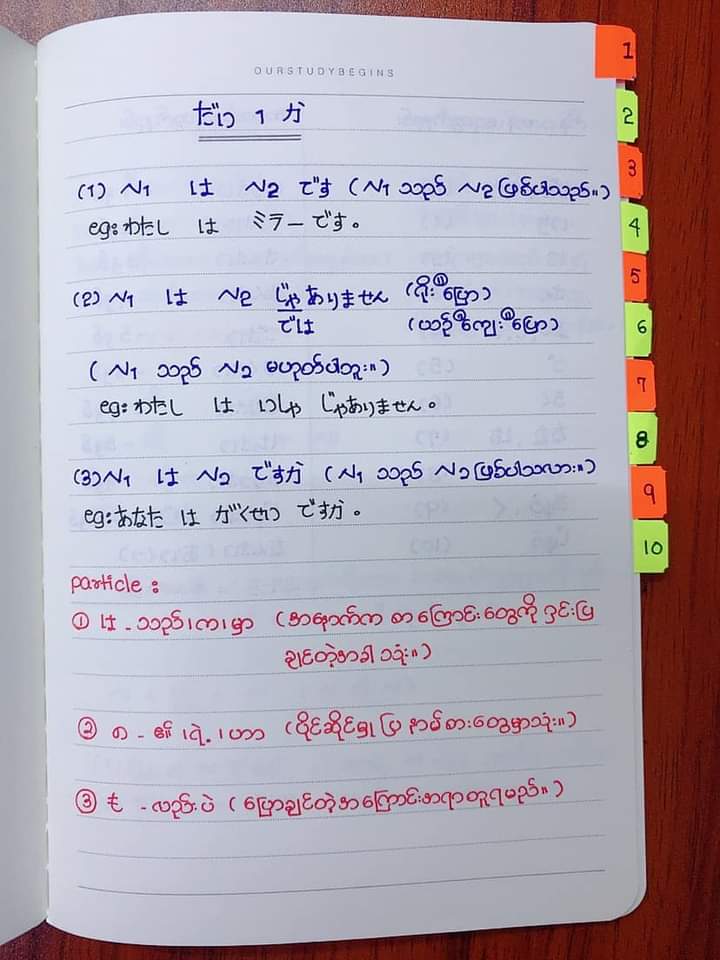 OURSTUDYBEGINS
だい 1 か
(1) N1 は N2 です (N1 သည် N2 ဖြစ်ပါသည်။)
eg: わたし は ミラー です。
(2) N1 は N2 じゃありません (ရိုးရိုးပြော)
では (ယဉ်ယဉ်ကျေးကျေးပြော)
( N1 သည် N2 မဟုတ်ပါဘူး။)
eg: わたし は いしゃ じゃありません。
(3) N1 は N2 ですか (N1 သည် N2 ဖြစ်ပါသလား။)
eg: あなた は がくせい ですか。
particle :
① は - သည်၊က၊မှာ (အနောက်က စာကြောင်းတွေကို ရှင်းပြ
ချင်တဲ့အခါ သုံး။)
② の - ၏၊ရဲ့၊ဟာ (ပိုင်ဆိုင်မှုပြ နာမ်စားတွေမှာသုံး။)
③ も - လည်းပဲ (ပြောချင်တဲ့အကြောင်းအရာတူရမည်။)
1
2
3
4
5
6
7
8
9
10